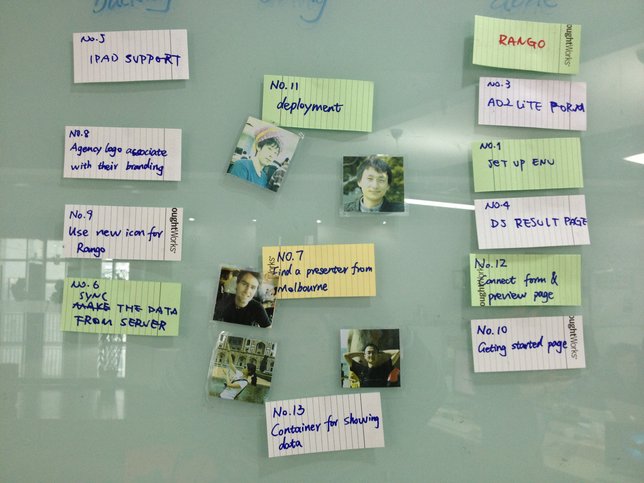 done
No.5
IPAD SUPPORT
No.8
Agency logo associate
with their branding
No.9
Use new icon for
Rango
oughtWorks
No.6
SYNC
MAKE THE DATA
FROM SERVER
No.11
deployment
No.7
Find a presenter from
Melbourne
Works
No.13
Container for showing
data
RANGO
oughtWorks
No.3
AD2 LITE FORM
No.1
SET UP ENV
No.4
DS RESULT PAGE
No.12
Connect form &
preview page
oughtWorks
No.10
Geting started page
oughtWorks